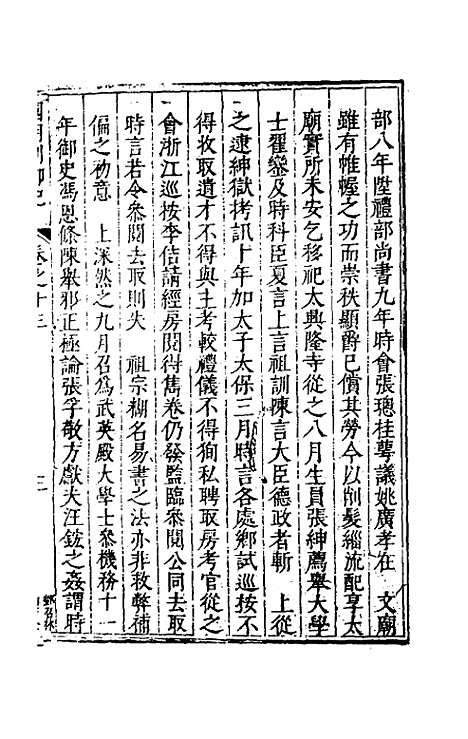 部八年陞禮部尚書九年時會張璁桂萼議姚廣孝在　文廟
雖有帷幄之功而崇秩顯爵已償其勞今以削髮緇流配享太
廟實所未安乞移祀太興隆寺從之八月生員張紳薦舉大學
士翟鑾及時科臣夏言上言祖訓陳言大臣德政者斬　上從
之逮紳獄拷訊十年加太子太保三月時言各處鄉試巡按不
得收取遺才不得與主考較禮儀不得狥私聘取房考官從之
會浙江巡按李佶請經房閱得雋卷仍發監臨參閱公同去取
時言若令參閱去取則失　祖宗糊名易書之法亦非救弊補
偏之初意　上深然之九月召為武英殿大學士參機務十一
年御史馮恩條陳舉邪正極論張孚敬方獻夫汪鋐之姦謂時
卷之十三
三